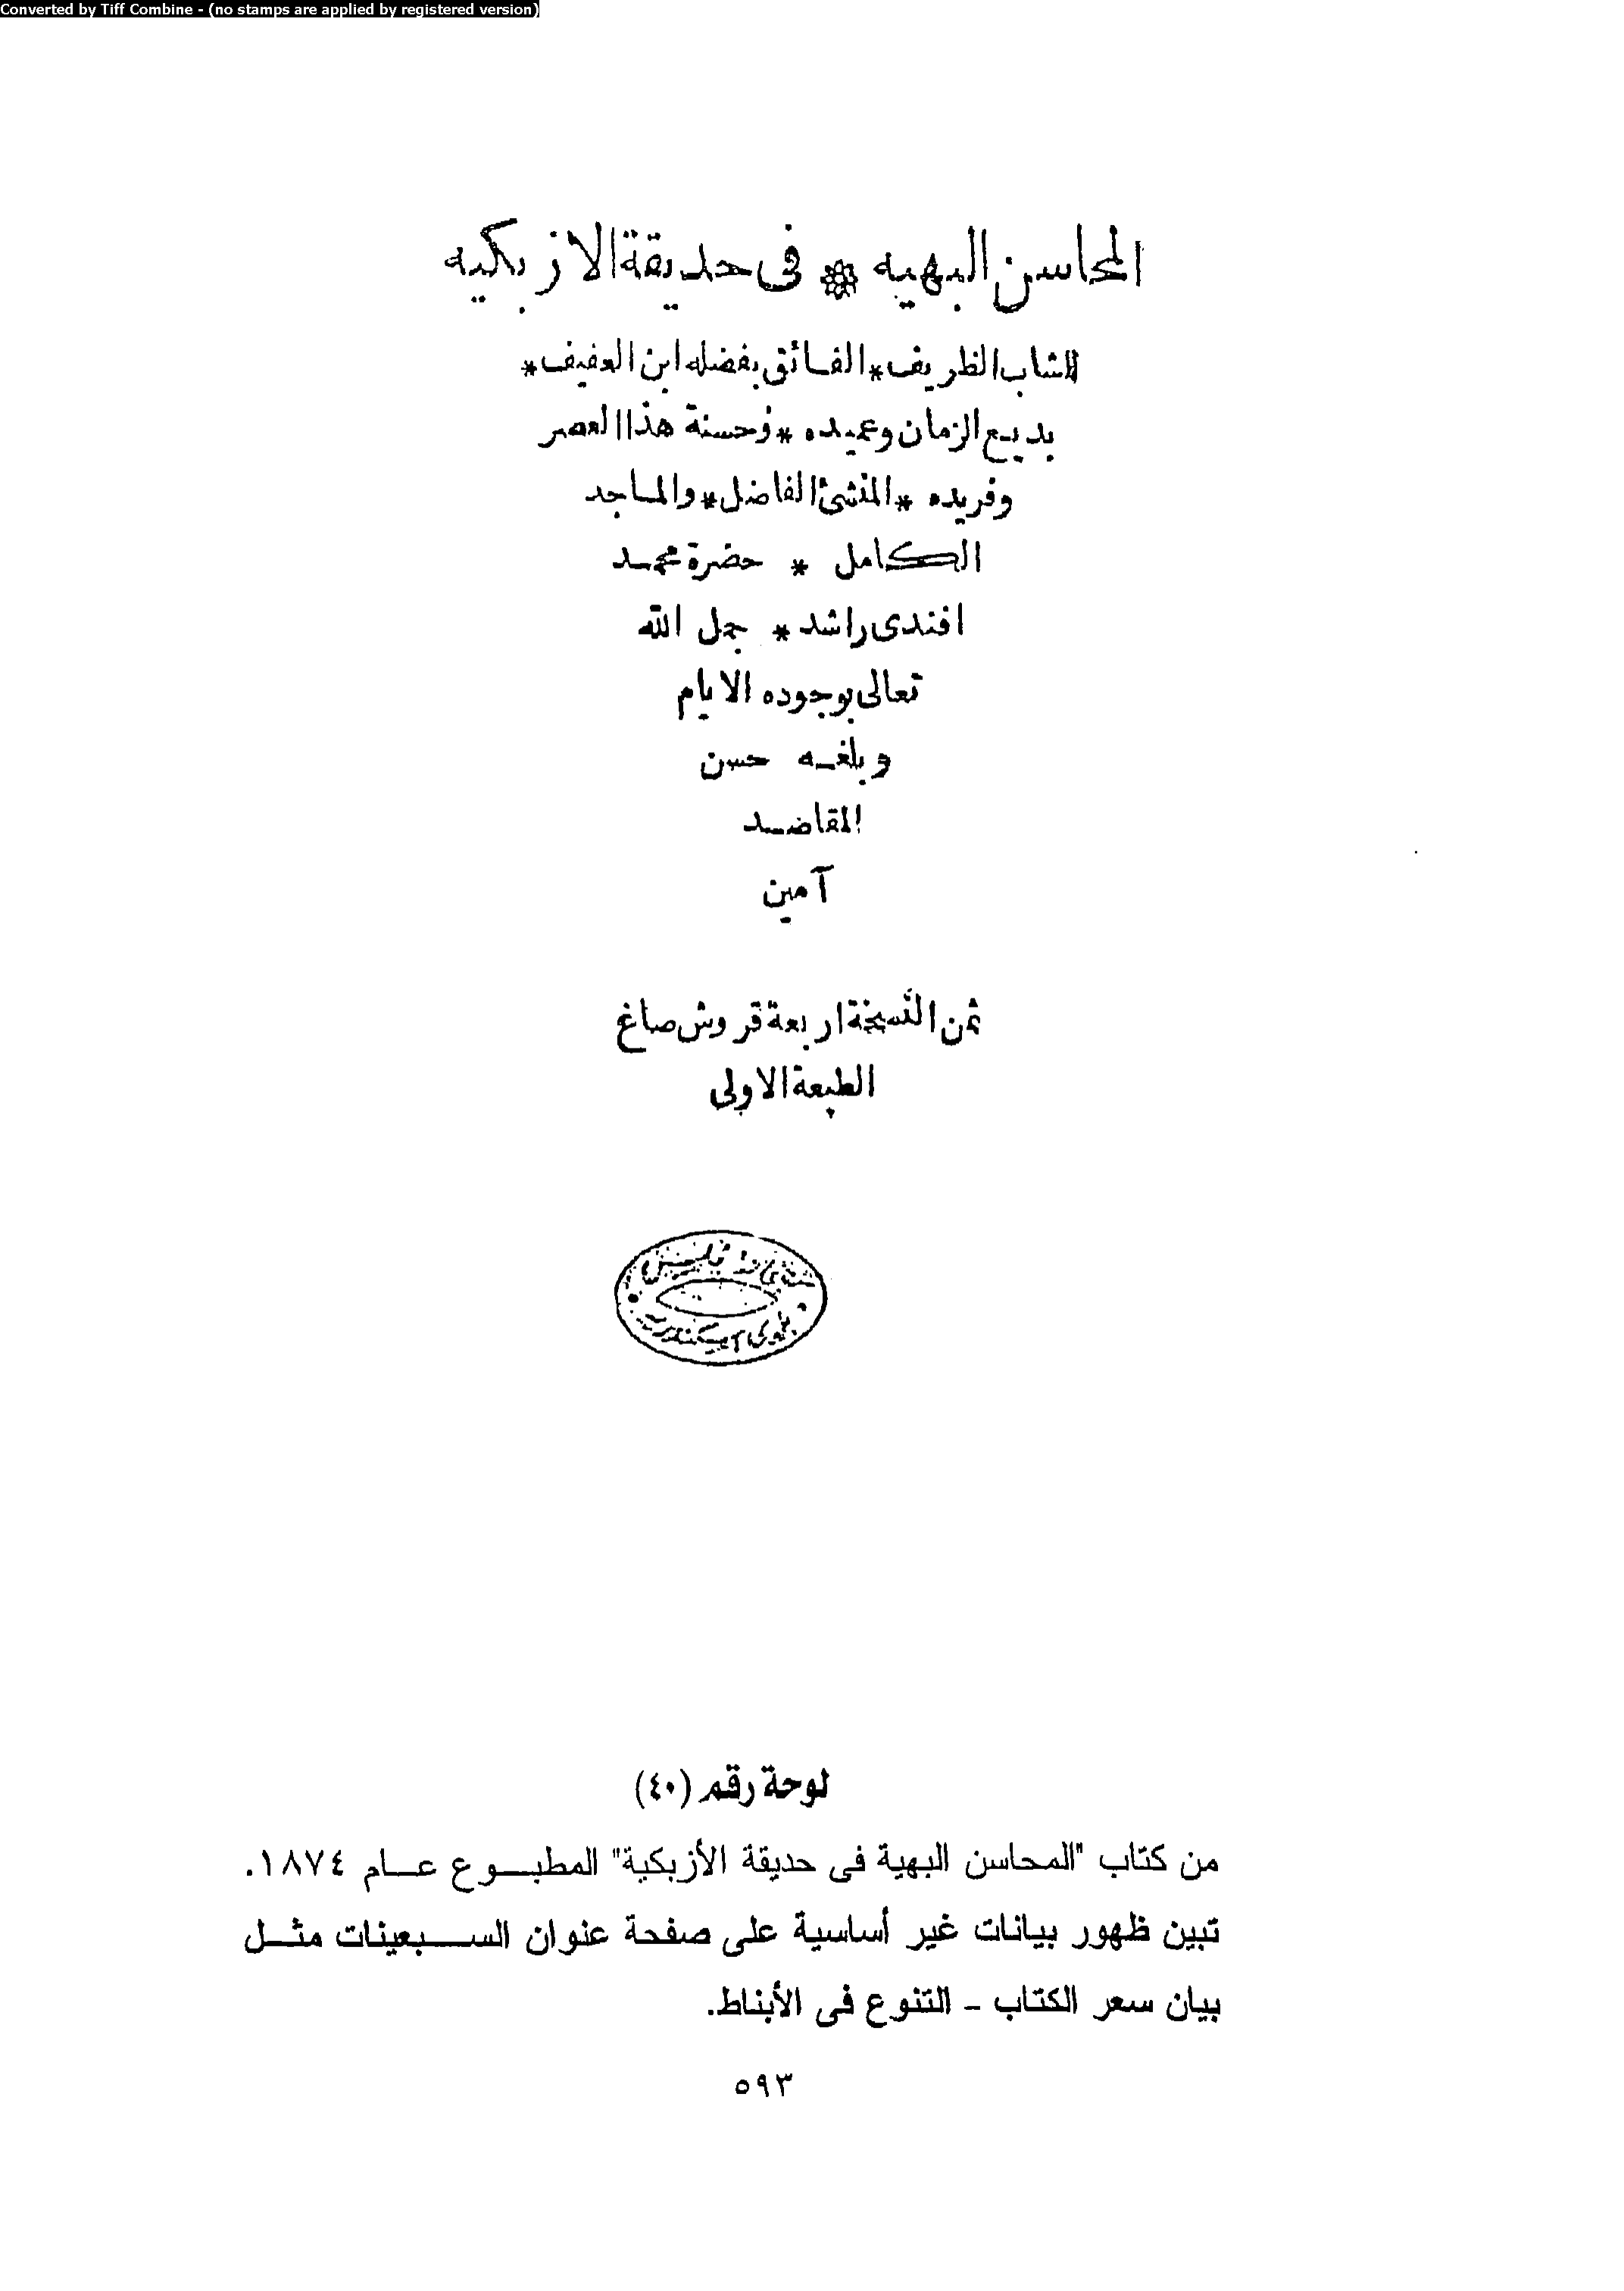 Converted by Tiff Combine - (no stamps are applied by registered version)
المحاسن البهيه * فى حديقة الازبكيه
للشاب الظريف * الفائق بفضله ابن العفيف *
بديع الزمان وعميده * وحسنة هذا العصر
وفريده * المنشئ الفاضل * والماجد
الكامل * حضرة محمد
افندى راشد * جمل الله
تعالى بوجوده الايام
وبلغه حسن
المقاصد
آمين
ثمن النسخة اربعة قروش صاغ
الطبعة الاولى
لوحة رقم (٤٠)
من كتاب "المحاسن البهية فى حديقة الأزبكية" المطبوع عام ١٨٧٤.
تبين ظهور بيانات غير أساسية على صفحة عنوان السبعينات مثل
بيان سعر الكتاب - التنوع فى الأبناط.
٥٩٣